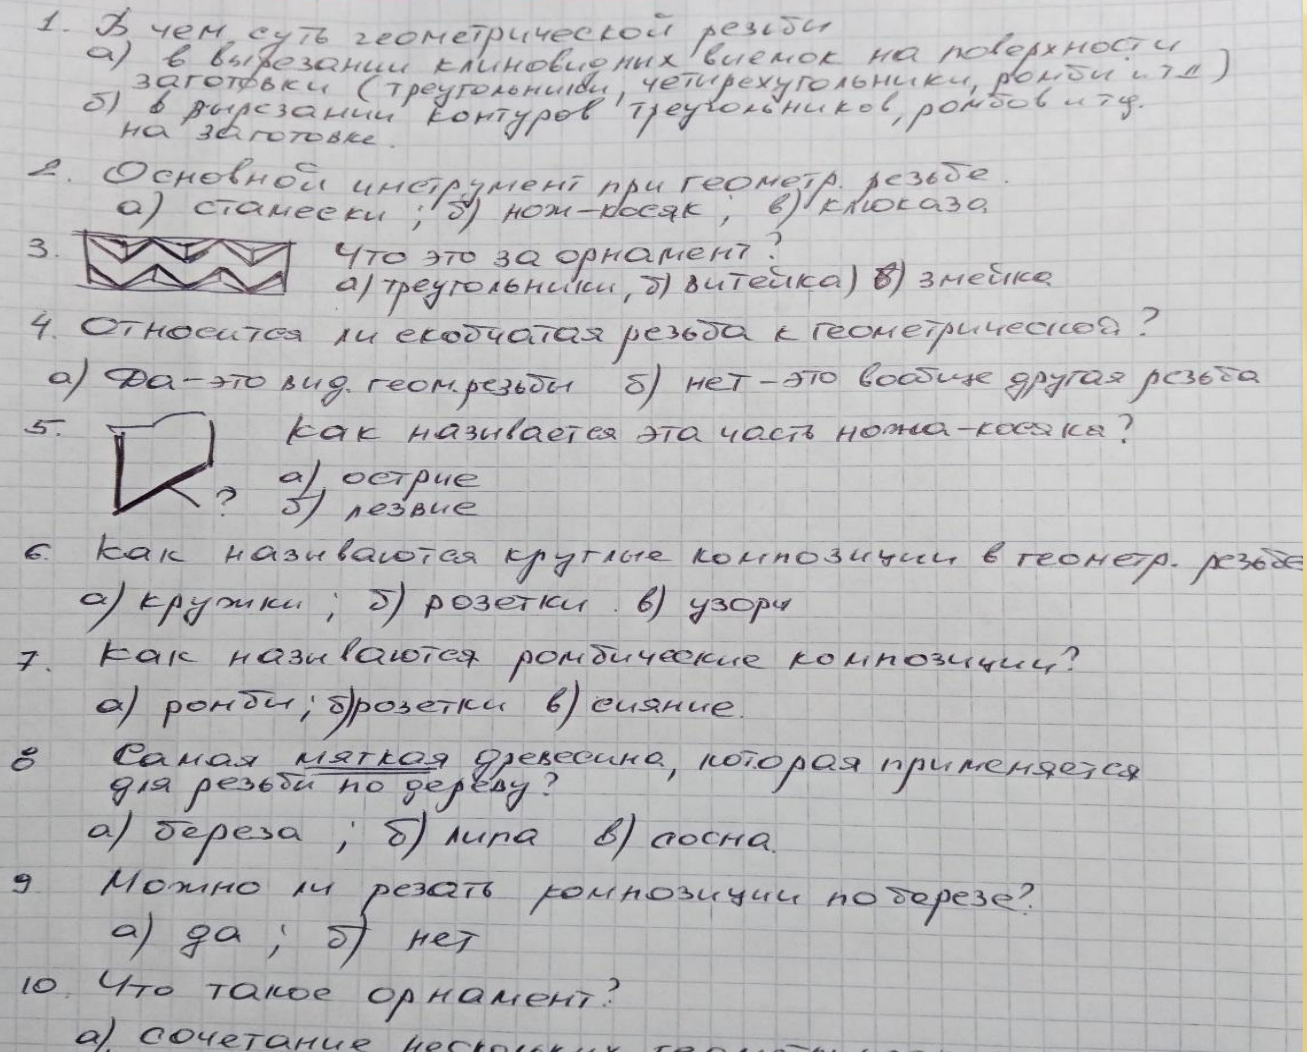 1. В чем суть геометрической резьбы
а) в вырезании клиновидных выемок на поверхности
заготовки (треугольники, четырехугольники, ромбы и т д)
б) в вырезании контуров треугольников, ромбов и тд.
на заготовке.
2. Основной инструмент при геометр. резьбе.
а) стамески ; б) нож-косяк ; в) клюказа
3. Что это за орнамент?
а) треугольники, б) витейка) в) змейка
4. Относится ли скобчатая резьба к геометрической?
а) Да-это вид. геом.резьбы б) нет-это вообще другая резьба
5. Как называется эта часть ножа-косяка?
а) острие
? б) лезвие
6. Как называются круглые композиции в геометр. резьбе
а) кружки ; б) розетки . в) узоры
7. Как называются ромбические композиции?
а) ромбы; б)розетки в) сияние.
8 Самая мягкая древесина, которая применяется
для резьбы по дереву?
а) береза ; б) липа в) сосна.
9 Можно ли резать композиции по березе?
а) да ; б) нет
10. Что такое орнамент?
а) сочетание нескольких